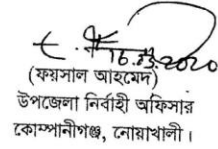 16.03.2020
(ফয়সাল আহমেদ)
উপজেলা নির্বাহী অফিসার
কোম্পানীগঞ্জ, নোয়াখালী।